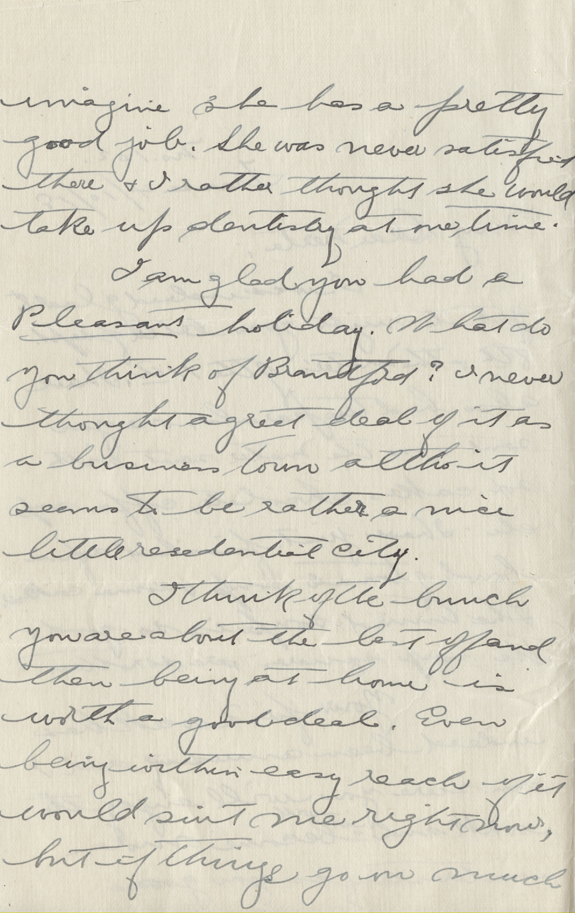 imagine she has a pretty
good job. She was never satisfied
there & I rather thought she would
take up dentistry at one time.
I am glad you had a
Pleasant holiday. What do
you think of Brantford? I never
thought a great deal of it as
a business town altho it
seems to be rather a nice
little resedential city.
I think of the bunch
you are about the best off and
then being at home is
worth a good deal. Even
being within easy reach of it
would suit me right now,
but if things go on much